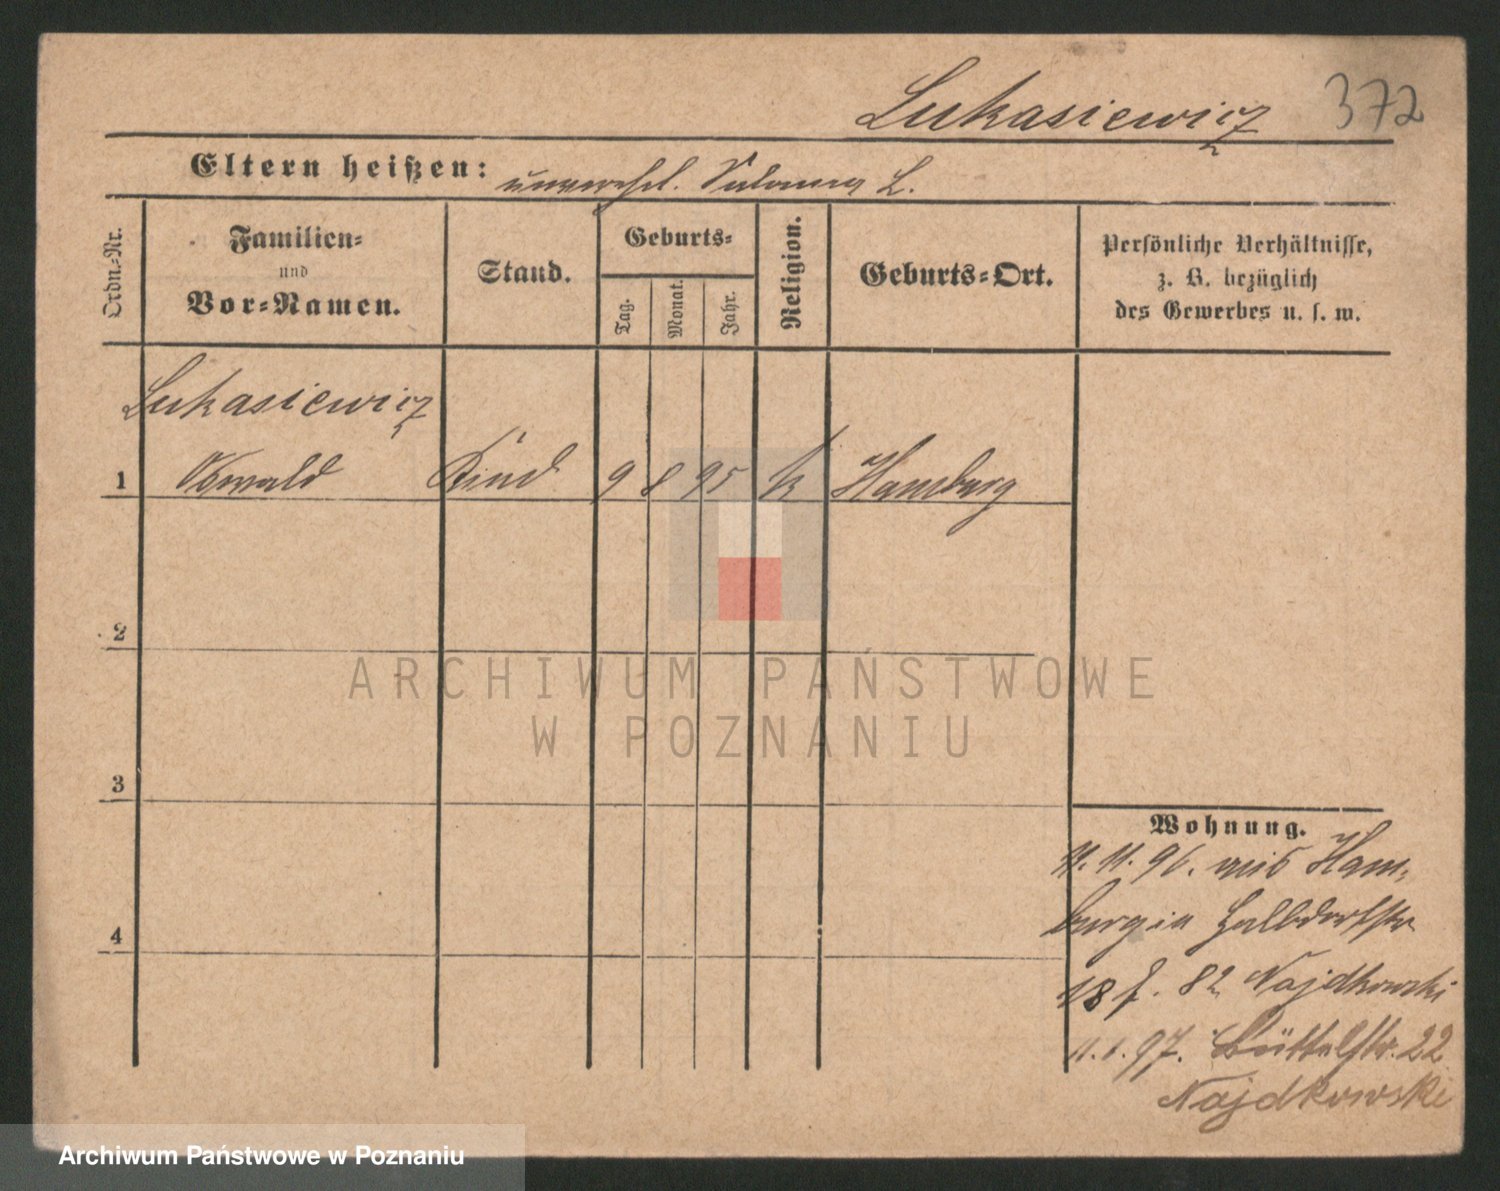 Lukasiewicz 372
Eltern heißen: unverehel. L.
Ordn.-Nr.
Familien-
und
Vor-Namen.
Stand.
Geburts-
Tag.
Monat.
Jahr.
Religion.
Geburts-Ort.
Persönliche Verhältnisse,
z. B. bezüglich
des Gewerbes u. s. w.
Lukasiewicz
1 Oswald Kind 9 8 95 k Hamburg
2
3
4
Wohnung.
11.11.96. aus Ham-
burg in Halbdorfstr
18 f. 82 Najdkowski
1.1.97. Büttelstr. 22
Najdkowski
ARCHIWUM PAŃSTWOWE
W POZNANIU
Archiwum Państwowe w Poznaniu